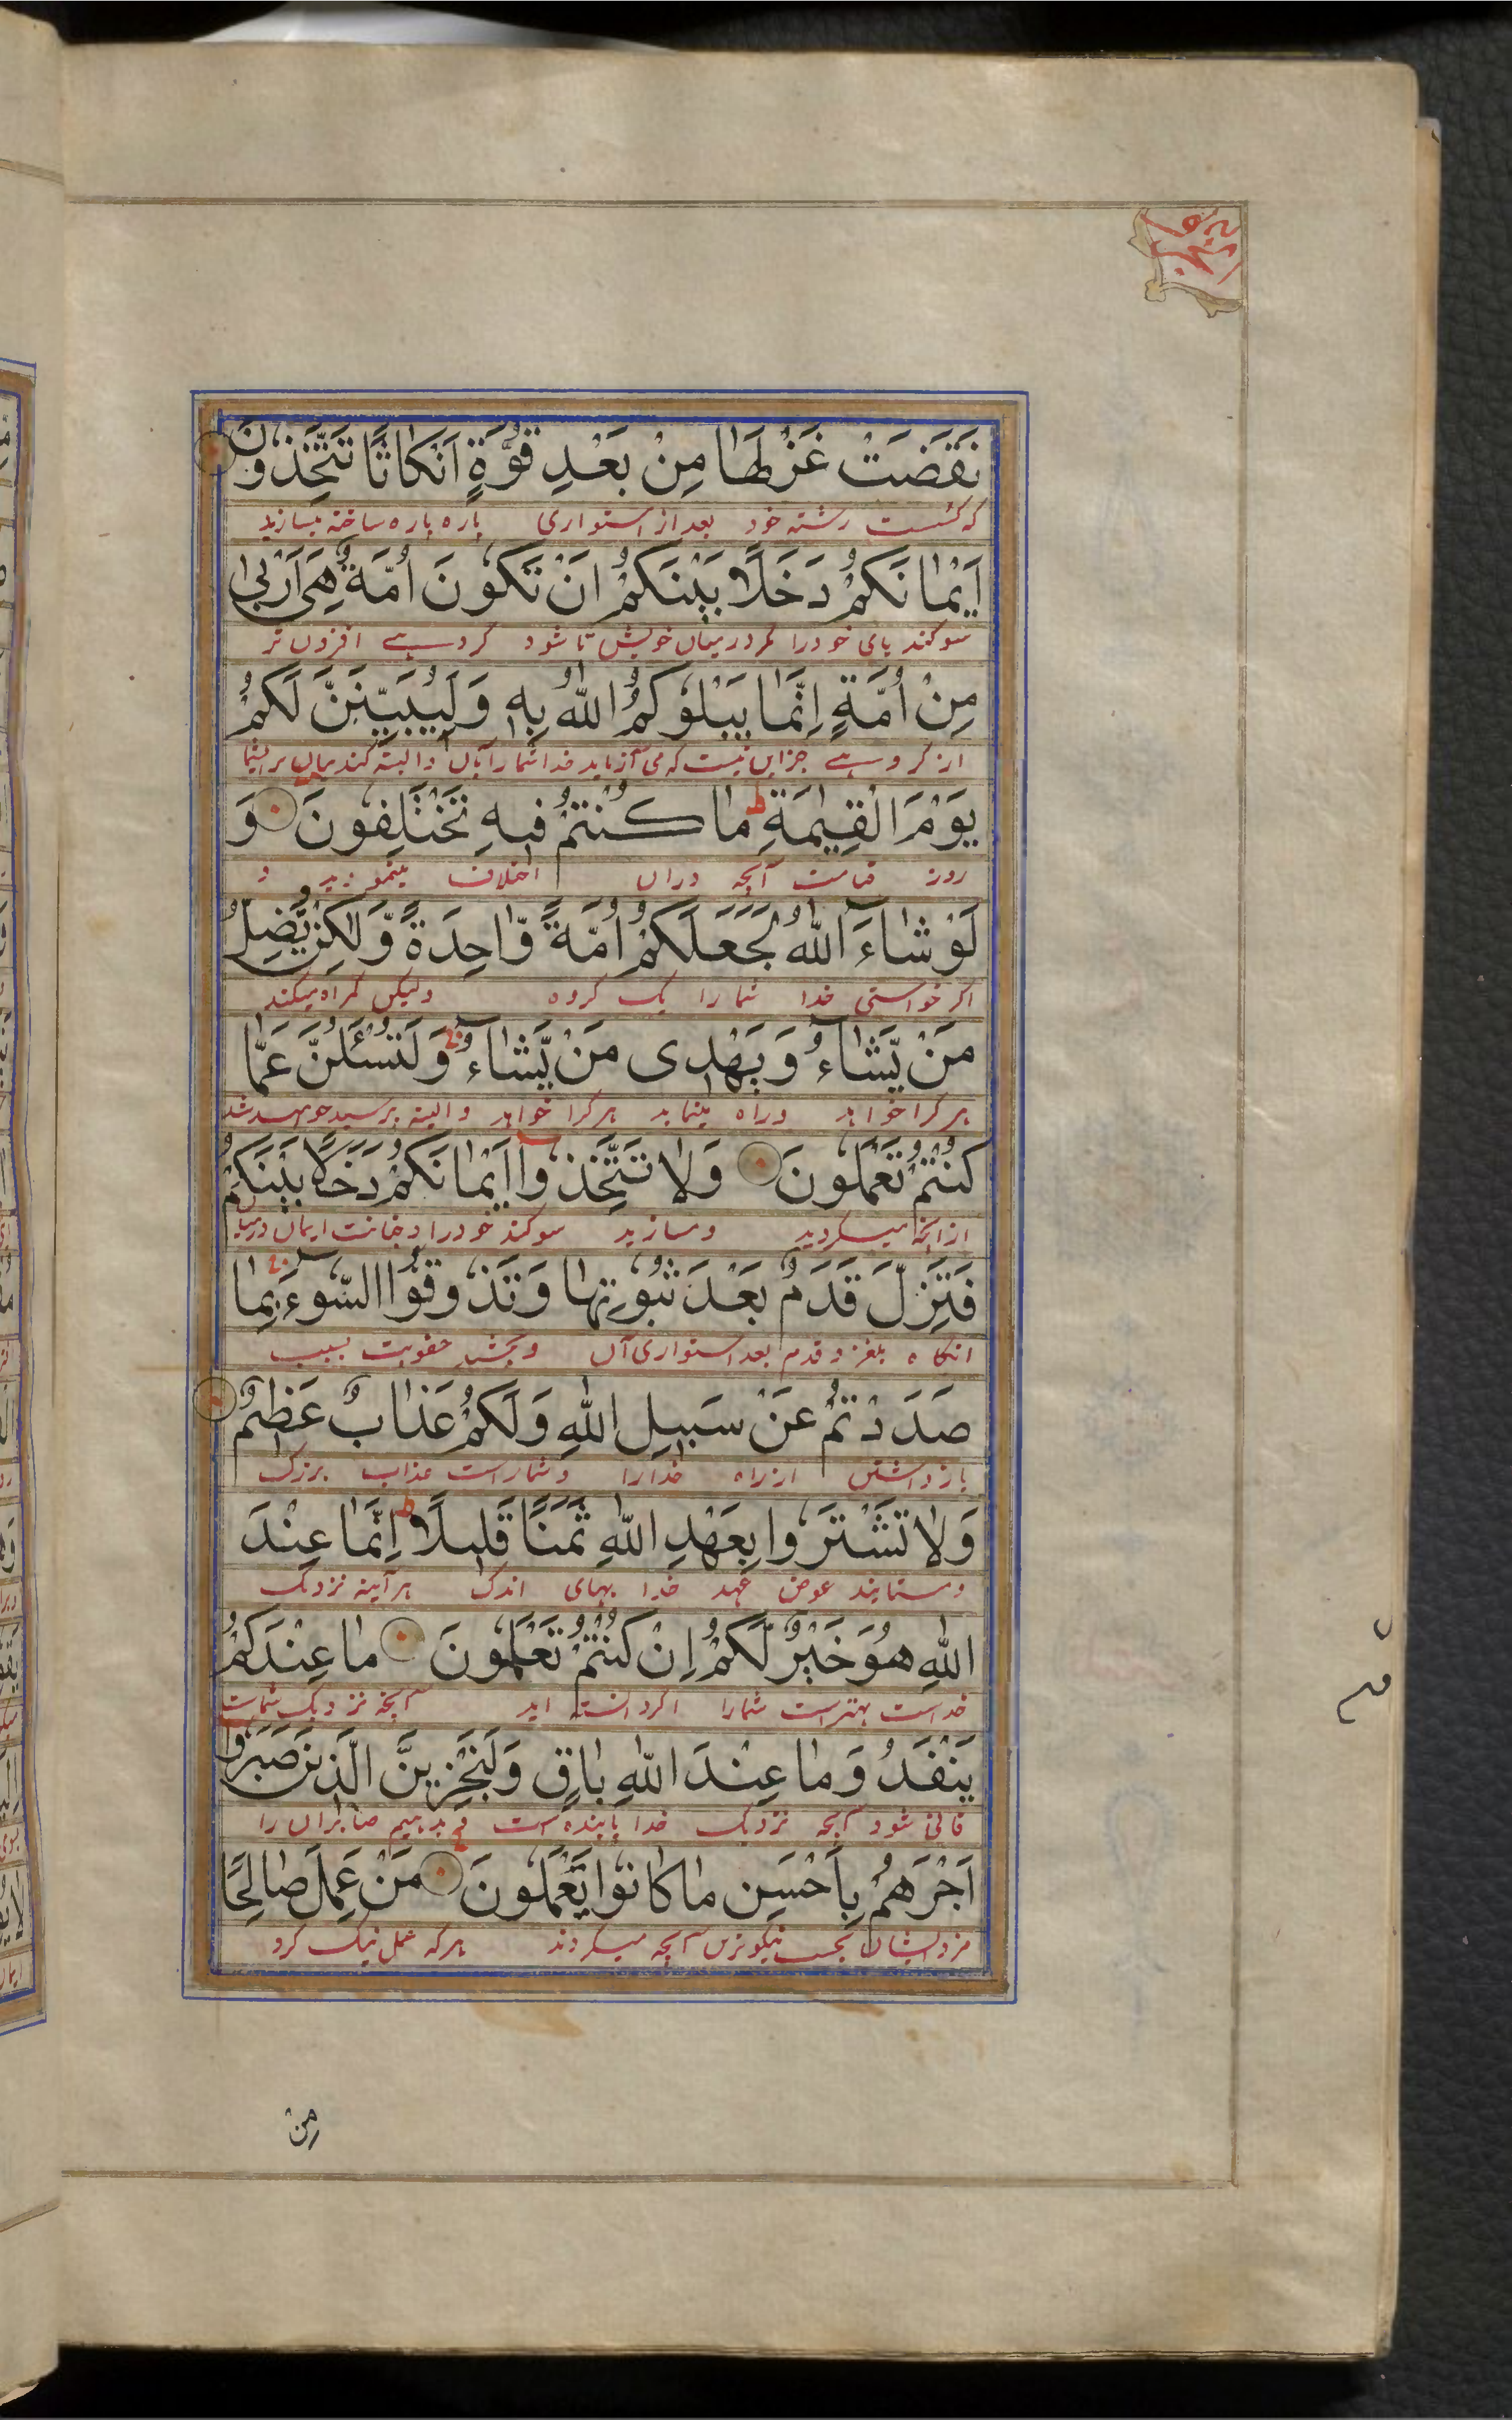 نَقَضَتْ غَزْلَهَا مِنْ بَعْدِ قُوَّةٍ اَنْكَاثًا تَتَّخِذُونَ
که گسست رشته خود بعد از استواری پاره پاره ساخته میسازید
اَيْمَانَكُمْ دَخَلًا بَيْنَكُمْ اَنْ تَكُونَ اُمَّةٌ هِىَ اَرْبٰى
سوکند های خود را مکر درمیان خویش تا شود کروهے افزون تر
مِنْ اُمَّةٍ اِنَّمَا يَبْلُوكُمُ اللّٰهُ بِهٖ وَلَيُبَيِّنَنَّ لَكُمْ
از کروهے جز این نیست که می آزماید خدا شما را بآن و البته کند بیان بر شما
يَوْمَ الْقِيٰمَةِ مَا كُنْتُمْ فِيهِ تَخْتَلِفُونَ وَ
روز قیامت آنچه دران اختلاف مینمودید و
لَوْ شَاءَ اللّٰهُ لَجَعَلَكُمْ اُمَّةً وَّاحِدَةً وَّلٰكِنْ يُّضِلُّ
اکر خواستی خدا شما را یک کروه ولیکن کمراه میکند
مَنْ يَّشَاءُ وَيَهْدِى مَنْ يَّشَاءُ وَلَتُسْئَلُنَّ عَمَّا
هر کرا خواهد و راه مینماید هر کرا خواهد و البته پرسیده خواهید شد
كُنْتُمْ تَعْمَلُونَ وَلَا تَتَّخِذُوا اَيْمَانَكُمْ دَخَلًا بَيْنَكُمْ
ازانچه میکردید و مسازید سوکند خود را
فَتَزِلَّ قَدَمٌ بَعْدَ ثُبُوتِهَا وَتَذُوقُوا السُّوءَ بِمَا
انکاه بلغزد قدم بعد استواری آن و بچشید عقوبت بسبب
صَدَدْتُمْ عَنْ سَبِيلِ اللّٰهِ وَلَكُمْ عَذَابٌ عَظِيمٌ
بازداشتن از راه خدا را و شما راست عذاب بزرک
وَلَا تَشْتَرُوا بِعَهْدِ اللّٰهِ ثَمَنًا قَلِيلًا اِنَّمَا عِنْدَ
و مستانید عوض عهد خدا بهای اندک هر آینه نزدیک
اللّٰهِ هُوَ خَيْرٌ لَّكُمْ اِنْ كُنْتُمْ تَعْلَمُونَ مَا عِنْدَكُمْ
خداست بهتر است شما را اکر دانسته اید آنچه نزدیک شماست
يَنْفَدُ وَمَا عِنْدَ اللّٰهِ بَاقٍ وَلَنَجْزِيَنَّ الَّذِينَ صَبَرُوا
فانی شود آنچه نزدیک خدا پاینده است و بدهیم صابران را
اَجْرَهُمْ بِاَحْسَنِ مَا كَانُوا يَعْمَلُونَ مَنْ عَمِلَ صَالِحًا
مزد ایشان بحسب نیکوترین آنچه میکردند هر که عمل نیک کرد
مِنْ